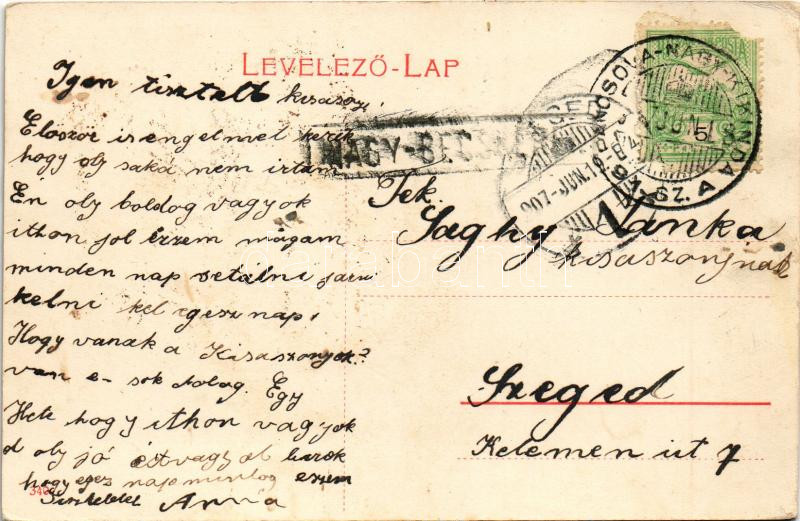 LEVELEZŐ-LAP
Igen tisztelt kisaszoy,
Elöször is engelmet kerik
hogy oly saká nem irtam
Én oly boldog vagyok
ithon jol érzem mágam
minden nap setálni járu
kelni kel egesz nap,
Hogy vanak a Kisaszonyok?
van e- sok dolog. Egy
Hete hogy ithon vagyok
d oly jó étvagyal
hogy egez nap mindog eszem
Tisztelelel Anna
NAGY-BECSKEREK
907-JUN.
BÁNOSOVA-NAGY-KIKINDA
JUN 5
91-SZ. A
Tek.
Saghy Janka
kisaszonynak
Szeged
Kelemen út 7